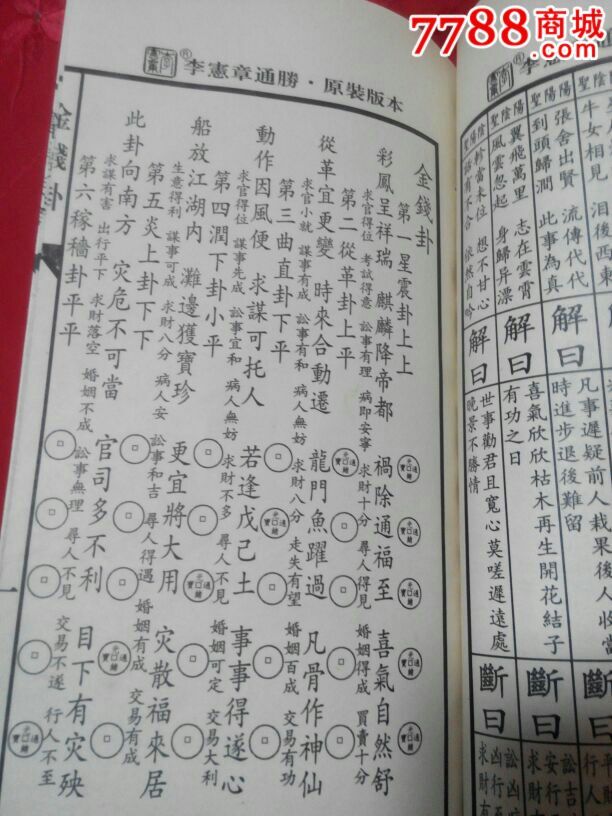 7788商城
.com
李憲章通勝·原裝版本
金錢卦
金錢卦
第一星震卦上上
彩鳳呈祥瑞 麒麟降帝都 禍除通福至 喜氣自然舒
求官得位 考試得意 訟事有理 病即安寧 求財十分 尋人得見 婚姻得成 買賣十分
第二從革卦上平
從革宜更變 時來合動遷 龍門魚躍過 凡骨作神仙
求官小就 謀事有成 訟事有和 病人無妨 求財八分 走失有望 婚姻百成 交易有功
第三曲直卦下平
動作因風便 求謀可托人 若逢戊己土 事事得遂心
求官得位 謀事先成 訟事宜和 病人無妨 求財不多 尋人不見 婚姻可定 交易大利
第四潤下卦小平
船放江湖內 灘邊獲寶珍 更宜將大用 灾散福來居
生意得利 謀事可成 求財八分 病人安 訟事和吉 尋人得遇 婚姻有成 交易有成
第五炎上卦下下
此卦向南方 灾危不可當 官司多不利 目下有灾殃
求謀有害 出行平下 求財落空 婚姻不成 訟事無理 尋人不見 交易不遂 行人不至
第六稼穡卦平平
李憲章
聖陽陽
張舍出賢 流傳代代
到頭歸澗 此事為真
聖陽陰
翼飛萬里 志在雲霄
風雲忽起 身歸异漂
聖陰陰
軫當來位 想不甘心
話有不合 依然自吟
牛女 后後西東
解曰
凡事遲疑前人栽果後人收
時進步退後難留
解曰
喜氣欣欣枯木再生開花結子
有功之日
解曰
世事勸君且寬心莫嗟遲遠處
晚景不勝情
斷曰
斷曰
斷曰
求財有